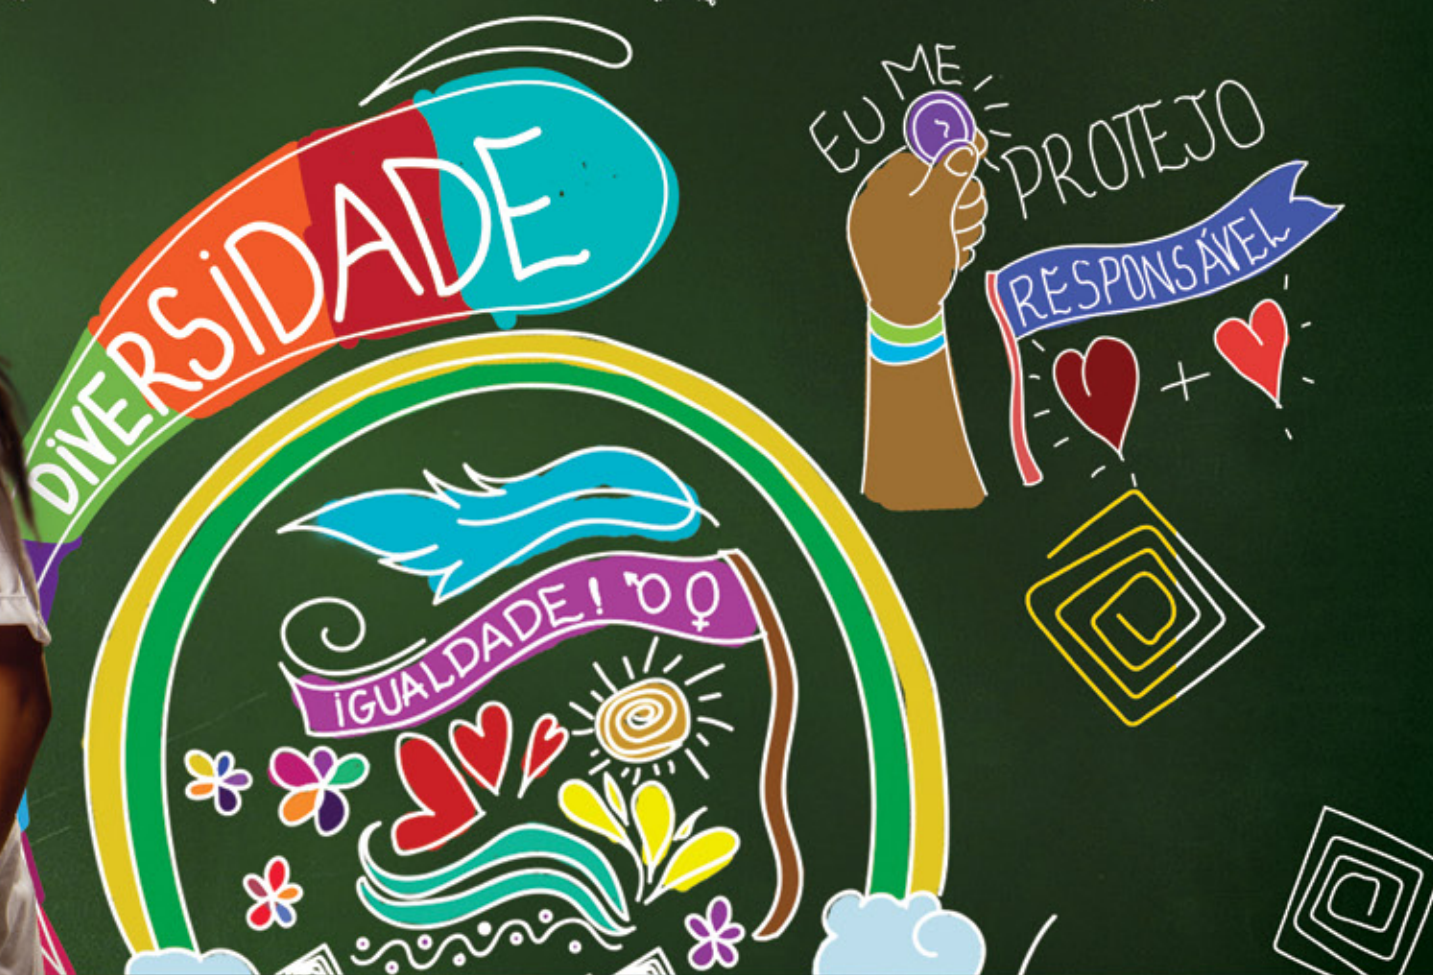 DIVERSIDADE
EU ME PROTEJO
RESPONSÁVEL
IGUALDADE! ♂♀